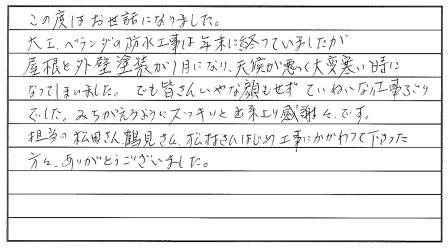 この度はお世話になりました。
大工、ベランダの防水工事は年末に終っていましたが
屋根と外壁塗装が1月になり、天候が悪く大変寒い時に
なってしまいました。でも皆さんいやな顔もせずていねいな仕事ぶり
でした。みちがえるようにスッキリと出来上り感謝々です。
担当の松田さん、鶴見さん、松村さんはじめ工事にかかわって下さった
方々、ありがとうございました。